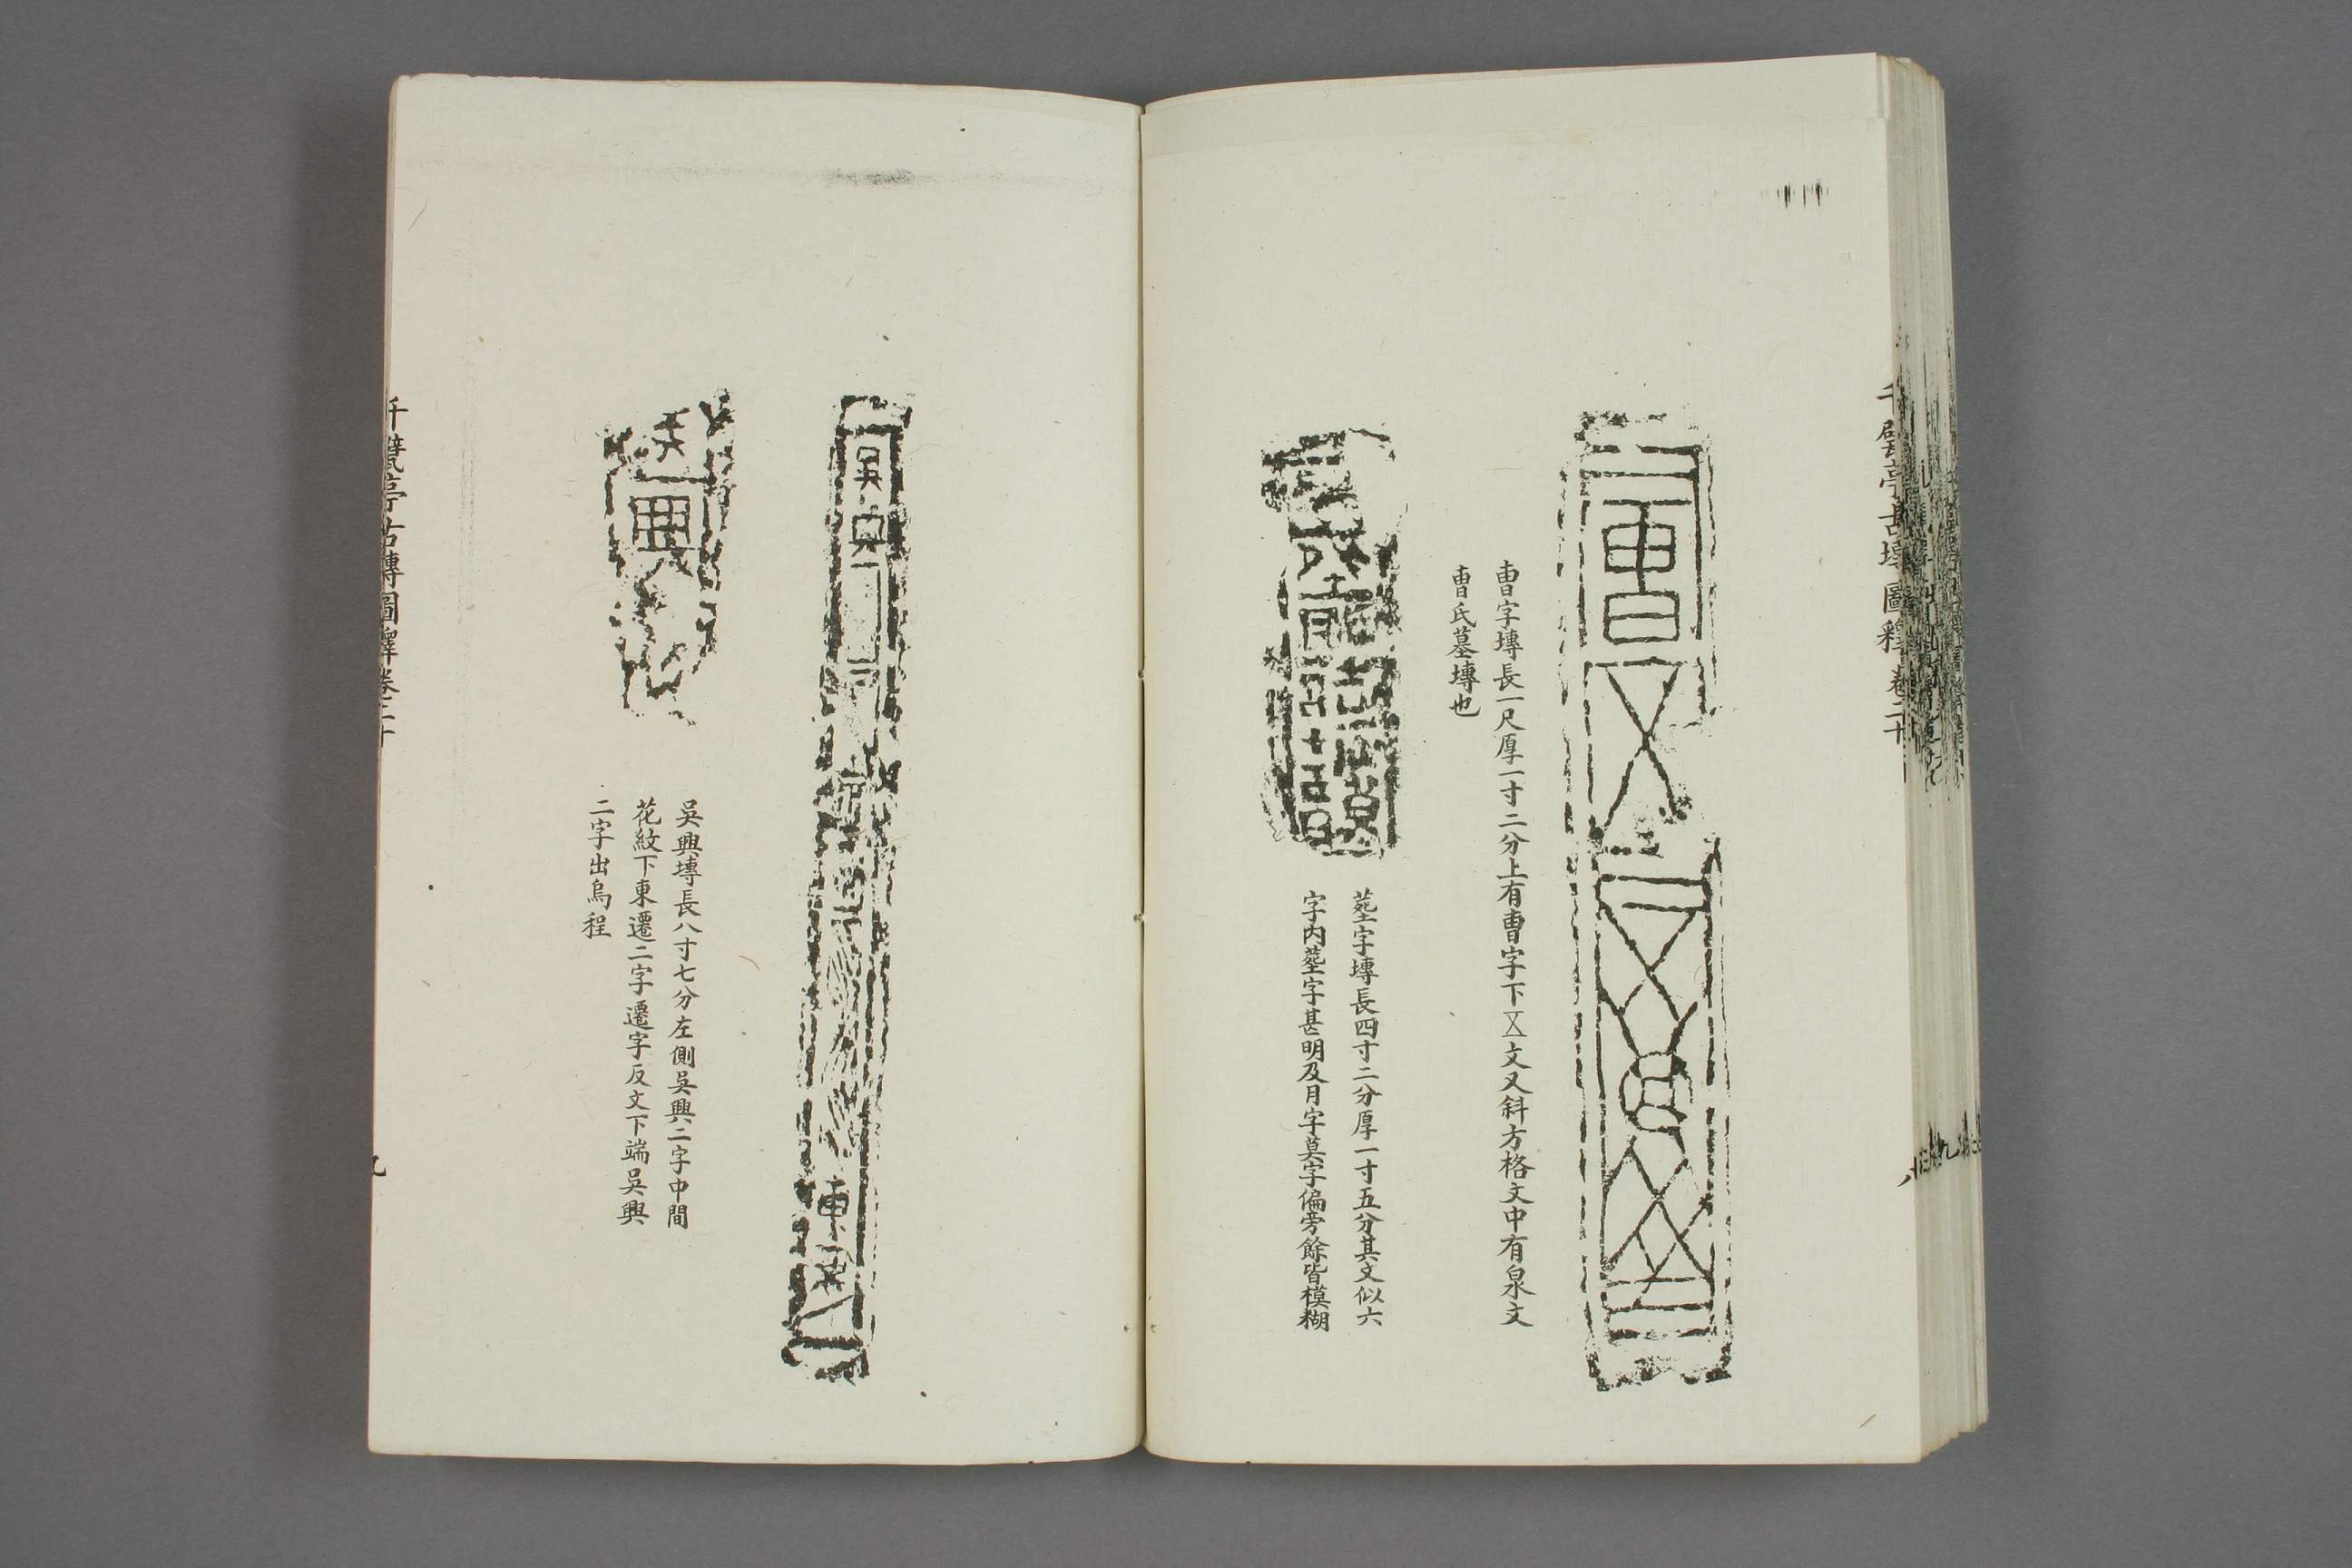 千甓亭古塼圖釋卷二十
八
曺
曺字塼長一尺厚一寸二分上有曺字下㐅文又斜方格文中有泉文
曺氏墓塼也
塟字塼長四寸二分厚一寸五分其文似六
字内塟字甚明及月字莫字偏旁餘皆模糊
吳興
東
吳興
吳興塼長八寸七分左側吳興二字中間
花紋下東遷二字遷字反文下端吳興
二字出烏程
千甓亭古塼圖釋卷二十
九